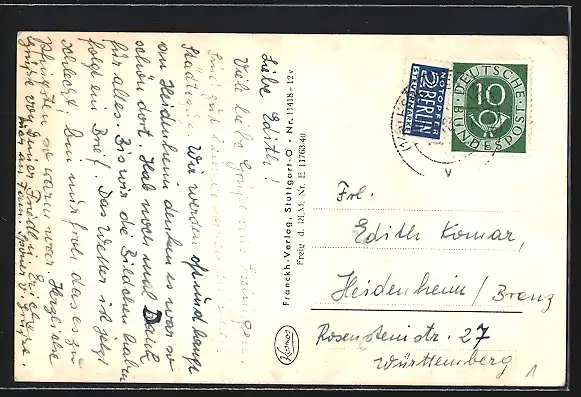 Liebe Edith!
Viele liebe Grüße aus
Städtchen. Wir werden oft und lange
an Heidenheim denken es war so
schön dort. Hab noch mal Dank
für alles. Bis wir die Bilder haben
folgt ein Brief. Das Wetter ist jetzt
schlecht, bin nur froh das es zu
Pfingsten so warm war. Herzliche
Grüße von Deiner
Franckh-Verlag, Stuttgart-O · Nr. 11418-12v
Freig. d. RLM. Nr. E 11763/40
Kosmos
2 NOTOPFER
BERLIN
STEUERMARKE
DEUTSCHE BUNDESPOST
10
Frl.
Edith Komar,
Heidenheim / Brenz
Rosensteinstr. 27
Württemberg
1